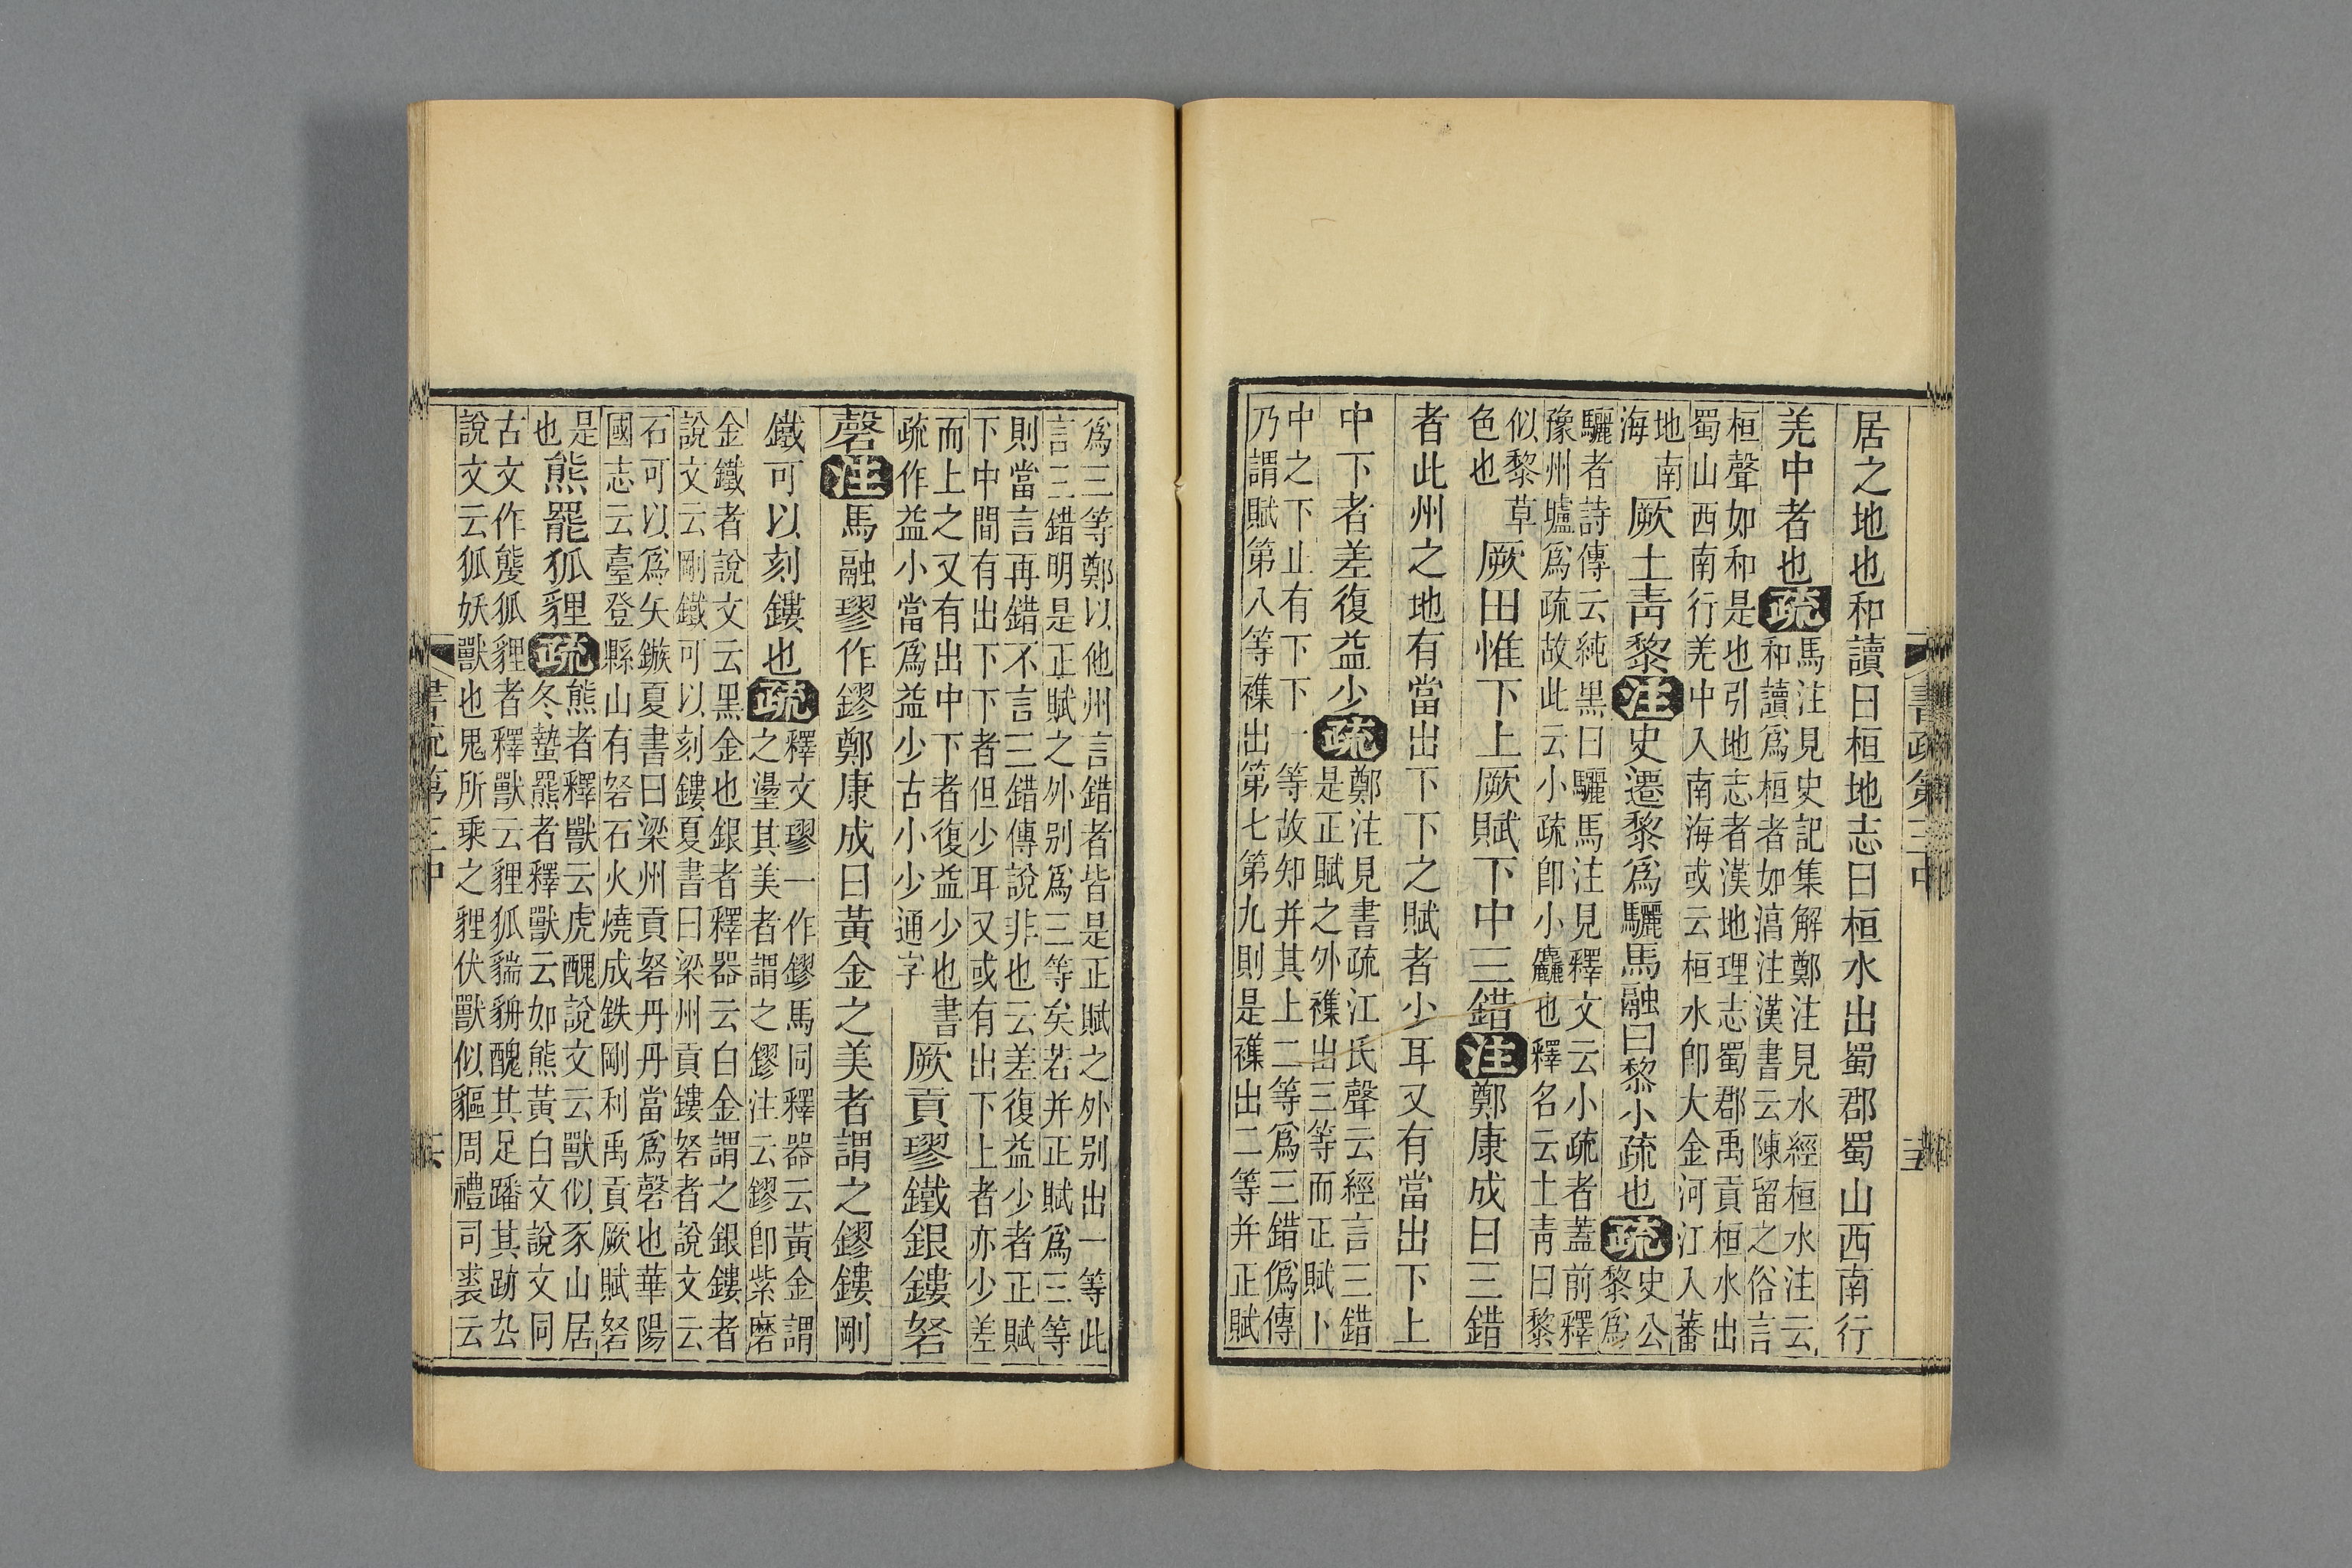 書疏第三中
居之地也和讀曰桓地志曰桓水出蜀郡蜀山西南行
羌中者也疏馬注見史記集解鄭注見水經桓水注云
和讀爲桓者如滈注漢書云陳留之俗言
桓聲如和是也引地志者漢地理志蜀郡禹貢桓水出
蜀山西南行羌中入南海或云桓水卽大金河江入蕃
地南
海
厥土靑黎注史遷黎爲驪馬融曰黎小疏也疏史公
黎爲
驪者詩傳云純黑曰驪馬注見釋文云小疏者蓋前釋
豫州壚爲疏故此云小疏卽小麤也釋名云土靑曰黎
似黎草
色也
厥田惟下上厥賦下中三錯注鄭康成曰三錯
者此州之地有當出下下之賦者少耳又有當出下上
中下者差復益少疏鄭注見書疏江氏聲云經言三錯
是正賦之外襍出三等而正賦卜
中之下止有下下一等故知并其上二等爲三錯僞傳
乃謂賦第八等襍出第七第九則是襍出二等并正賦
爲三等鄭以他州言錯者皆是正賦之外別出一等此
言三錯明是正賦之外別爲三等矣若并正賦爲三等
則當言再錯不言三錯傳說非也云差復益少者正賦
下中間有出下下者但少耳又或有出下上者亦少差
而上之又有出中下者復益少也書
疏作益小當爲益少古小少通字
厥貢璆鐵銀鏤砮
磬注馬融璆作鏐鄭康成曰黃金之美者謂之鏐鏤剛
鐵可以刻鏤也疏釋文璆一作鏐馬同釋器云黃金謂
之璗其美者謂之鏐注云鏐卽紫磨
金鐵者說文云黑金也銀者釋器云白金謂之銀鏤者
說文云剛鐵可以刻鏤夏書曰梁州貢鏤砮者說文云
石可以爲矢鏃夏書曰梁州貢砮丹丹當爲磬也華陽
國志云臺登縣山有砮石火燒成鉄剛利禹貢厥賦砮
是
也
熊羆狐貍疏熊者釋獸云虎醜說文云獸似豕山居
冬蟄羆者釋獸云如熊黃白文說文同
古文作𩦡狐貍者釋獸云貍狐貒貈醜其足蹯其跡厹
說文云狐妖獸也鬼所乘之貍伏獸似貙周禮司裘云
書疏第三中